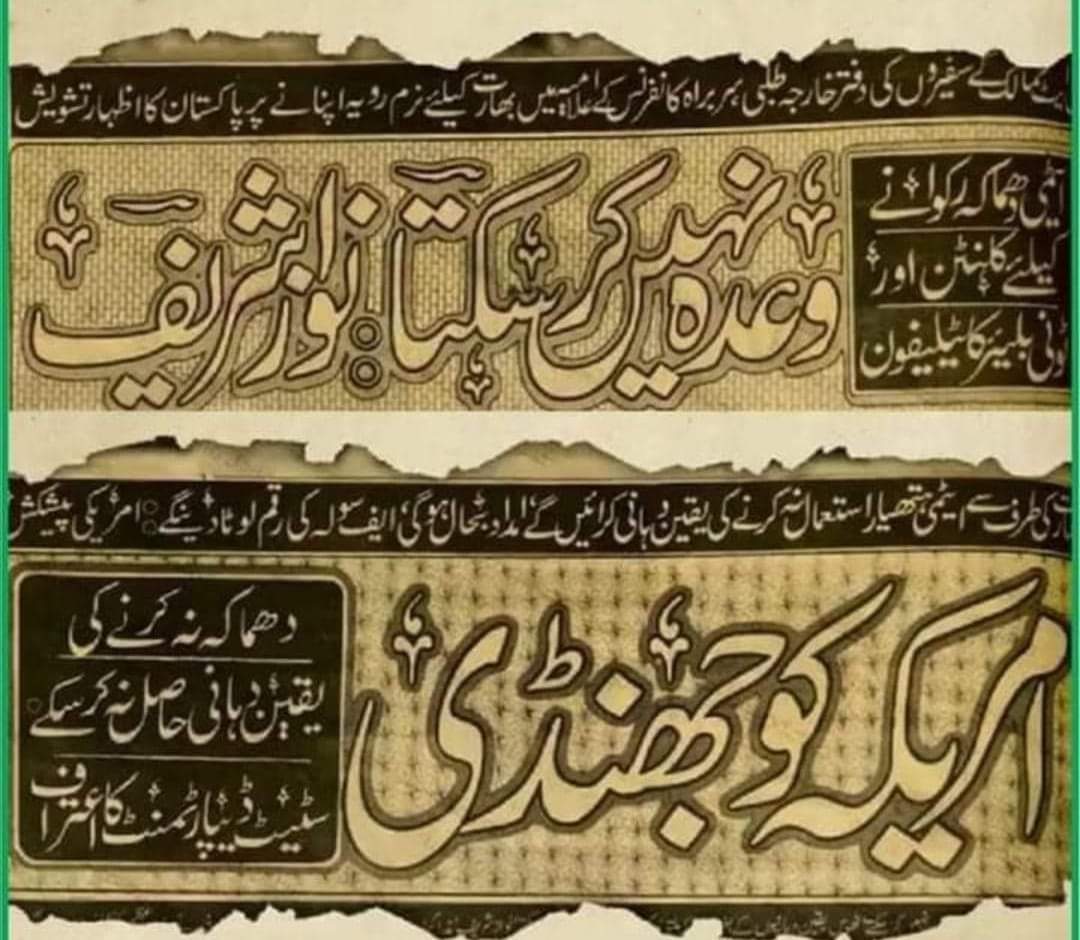 ممالک کے سفیروں کی دفتر خارجہ طلبی، سربراہ کانفرنس کے اعلامیہ میں بھارت کیلئے نرم رویہ اپنانے پر پاکستان کا اظہار تشویش
ایٹمی دھماکہ رکوانے
کیلئے کلنٹن اور
ٹونی بلیئر کا ٹیلیفون
وعدہ نہیں کر سکتا: نواز شریف
کی طرف سے ایٹمی ہتھیار استعمال نہ کرنے کی یقین دہانی کرائیں گے، امداد بحال ہوگی، ایف سولہ کی رقم لوٹا دینگے: امریکی پیشکش
امریکہ کو جھنڈی
دھماکہ نہ کرنے کی
یقین دہانی حاصل نہ کر سکے
سٹیٹ ڈیپارٹمنٹ کا اعتراف